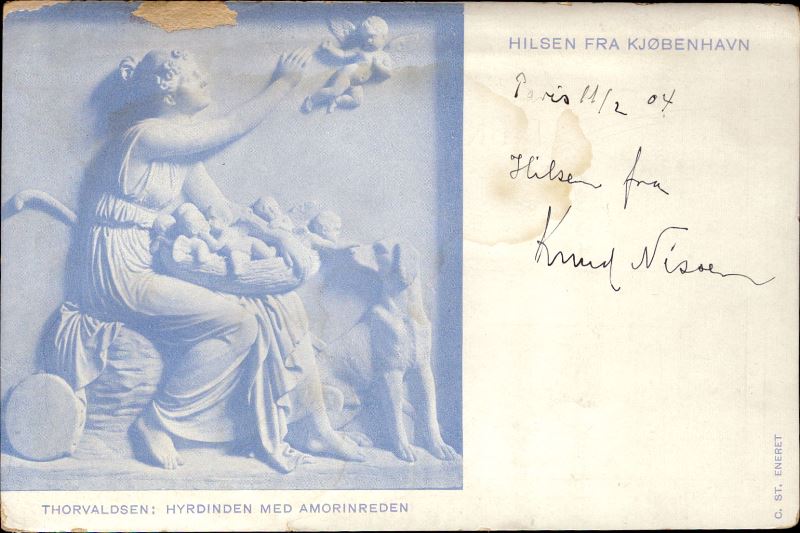 HILSEN FRA KJØBENHAVN
Paris 11/2 04
Hilsen fra
Knud
THORVALDSEN: HYRDINDEN MED AMORINREDEN
C. ST. ENERET